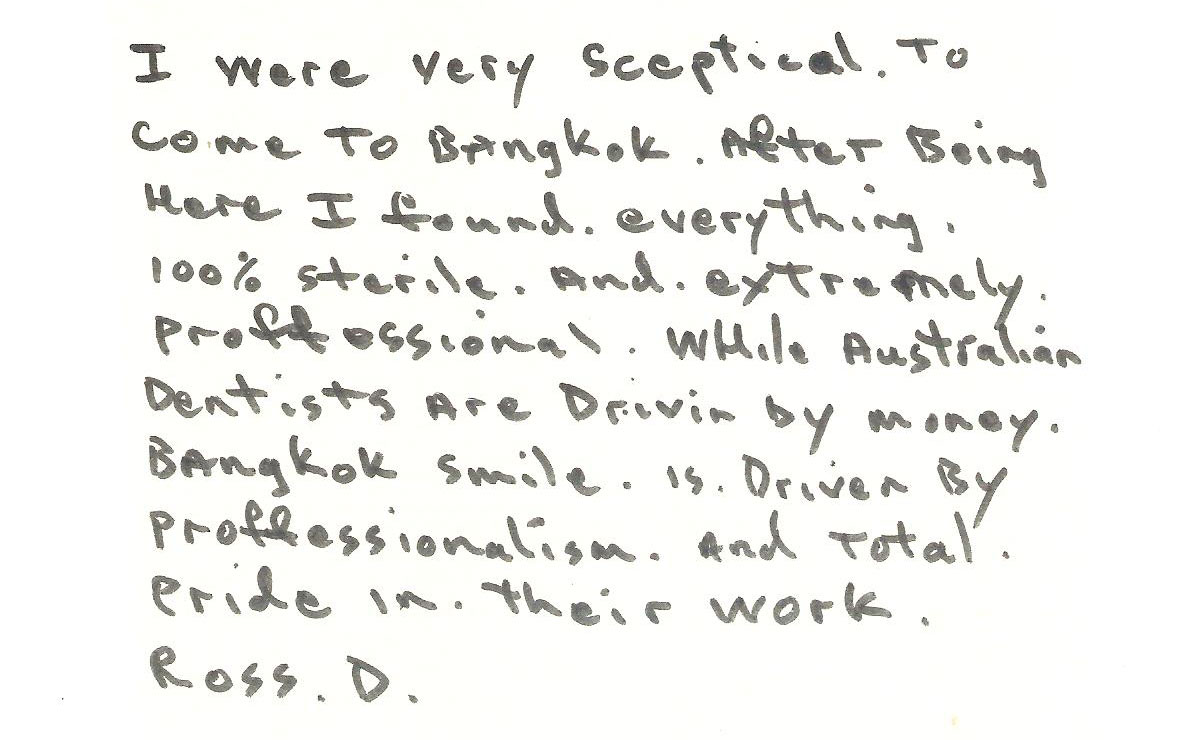 I were very sceptical. To
come To BAngkok. After Being
Here I found. everything.
100% sterile. And. extremely.
proffessional. WHile Australian
Dentists Are Drivin by money.
BAngkok smile. is. Driven By
proffessionalism. And Total.
Pride in. their work.
Ross. D.